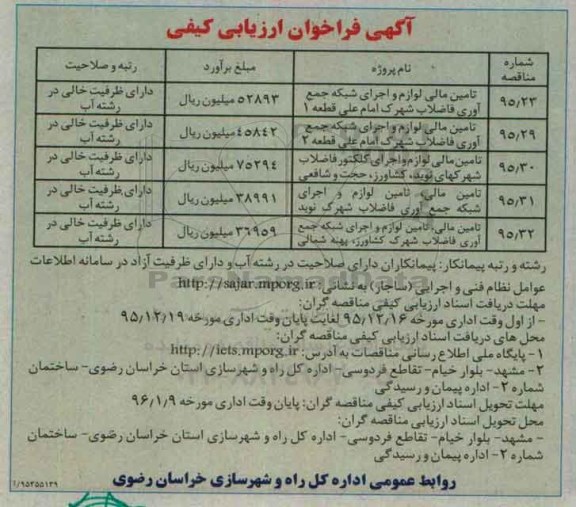 آگهی فراخوان ارزیابی کیفی
شماره مناقصه | نام پروژه | مبلغ برآورد | رتبه و صلاحیت
۹۵/۲۳ | تامین مالی لوازم و اجرای شبکه جمع آوری فاضلاب شهرک امام علی قطعه ۱ | ۵۲۸۹۳ میلیون ریال | دارای ظرفیت خالی در رشته آب
۹۵/۲۹ | تامین مالی لوازم و اجرای شبکه جمع آوری فاضلاب شهرک امام علی قطعه ۲ | ۴۵۸۴۲ میلیون ریال | دارای ظرفیت خالی در رشته آب
۹۵/۳۰ | تامین مالی لوازم و اجرای کلکتور فاضلاب شهرکهای نوید، کشاورز، حجت و شافعی | ۷۵۲۹۴ میلیون ریال | دارای ظرفیت خالی در رشته آب
۹۵/۳۱ | تامین مالی، تامین لوازم و اجرای شبکه جمع آوری فاضلاب شهرک نوید | ۳۸۹۹۱ میلیون ریال | دارای ظرفیت خالی در رشته آب
۹۵/۳۲ | تامین مالی، تامین لوازم و اجرای شبکه جمع آوری فاضلاب شهرک کشاورز، پهنه شمالی | ۳۶۹۵۹ میلیون ریال | دارای ظرفیت خالی در رشته آب
رشته و رتبه پیمانکار: پیمانکاران دارای صلاحیت در رشته آب و دارای ظرفیت آزاد در سامانه اطلاعات
عوامل نظام فنی و اجرایی (ساجار) به نشانی: http://sajar.mporg.ir
مهلت دریافت اسناد ارزیابی کیفی مناقصه گران:
- از اول وقت اداری مورخه ۹۵/۱۲/۱۶ لغایت پایان وقت اداری مورخه ۹۵/۱۲/۱۹
محل های دریافت اسناد ارزیابی کیفی مناقصه گران:
۱- پایگاه ملی اطلاع رسانی مناقصات به آدرس: http://iets.mporg.ir
۲- مشهد- بلوار خیام- تقاطع فردوسی- اداره کل راه و شهرسازی استان خراسان رضوی- ساختمان
شماره ۲- اداره پیمان و رسیدگی
مهلت تحویل اسناد ارزیابی کیفی مناقصه گران: پایان وقت اداری مورخه ۹۶/۱/۹
محل تحویل اسناد ارزیابی مناقصه گران:
- مشهد- بلوار خیام- تقاطع فردوسی- اداره کل راه و شهرسازی استان خراسان رضوی- ساختمان
شماره ۲- اداره پیمان و رسیدگی
روابط عمومی اداره کل راه و شهرسازی خراسان رضوی